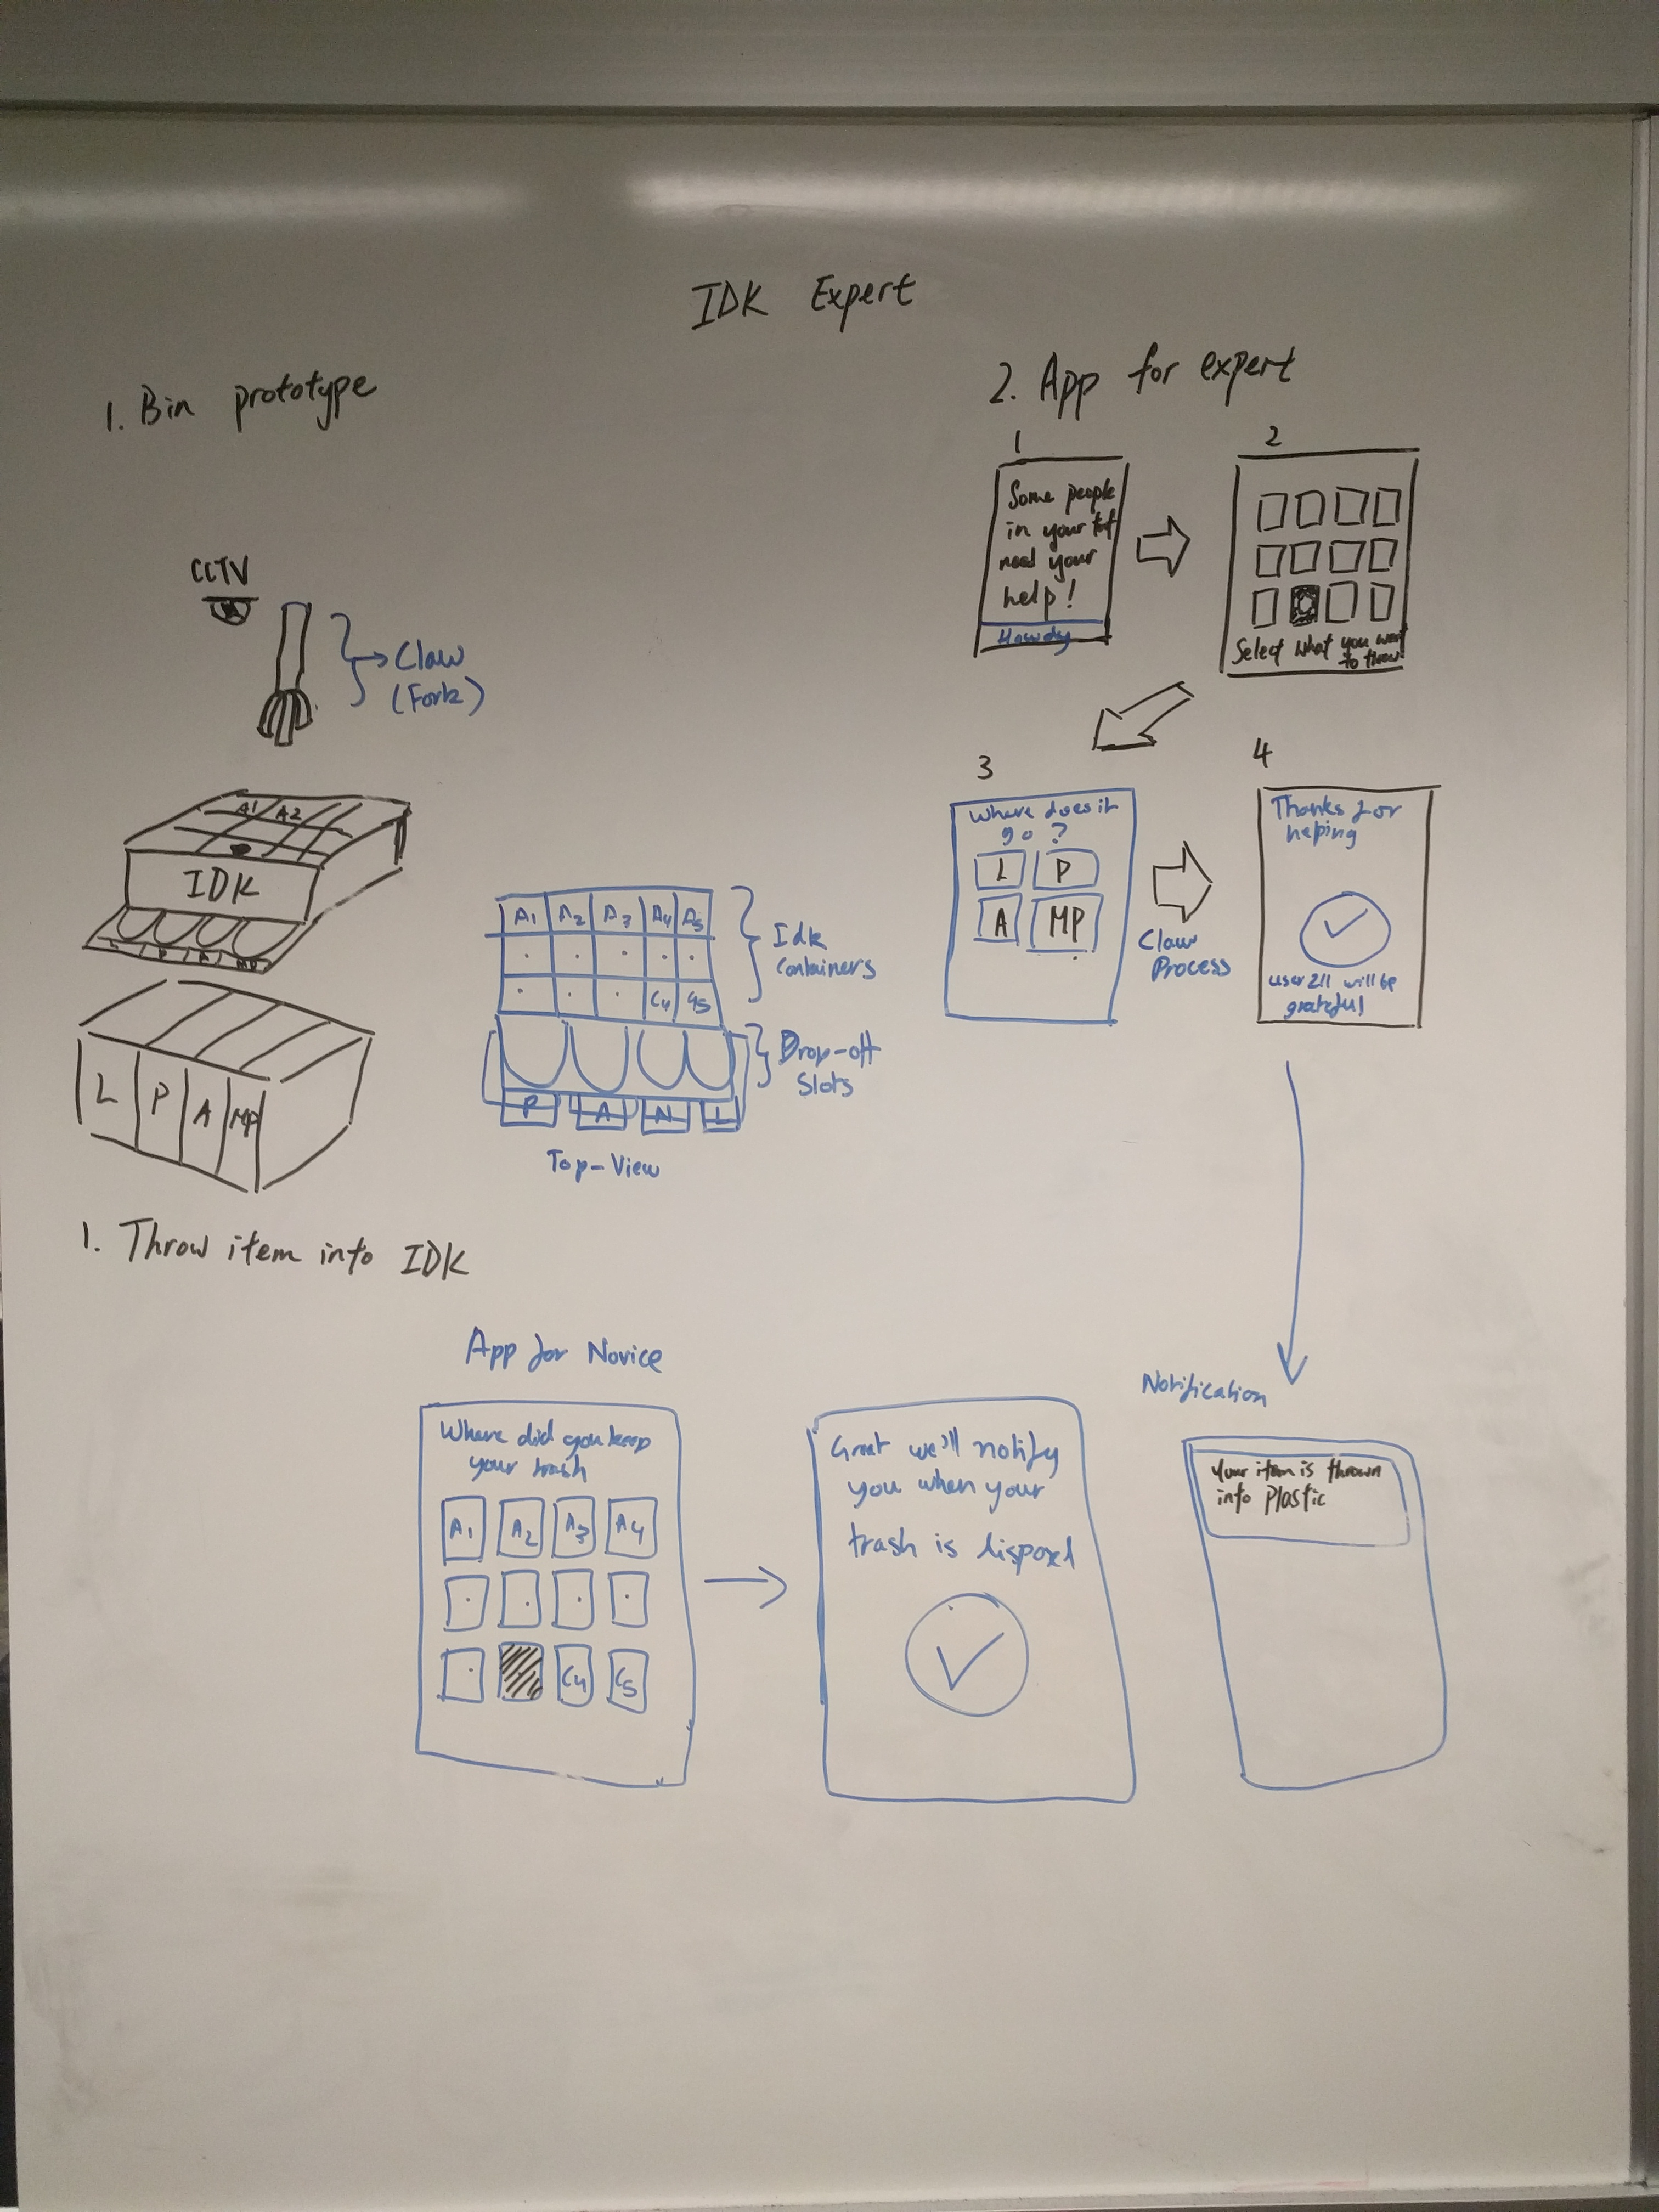 IDK Expert
1. Bin prototype
CCTV
Claw
(Fork)
A1 A2
IDK
P A MP
L P A MP
A1 A2 A3 A4 A5
C4 C5
Idk
Containers
Drop-off
Slots
P A N L
Top-View
1. Throw item into IDK
2. App for expert
1
Some people
in your
need your
help!
Howdy
2
Select what you want
to throw
3
Where does it
go?
L P
A MP
Claw
Process
4
Thanks for
helping
user 211 will be
grateful
App for Novice
Where did you keep
your trash
A1 A2 A3 A4
C4 C5
Great we'll notify
you when your
trash is disposed
Notification
Your item is thrown
into Plastic